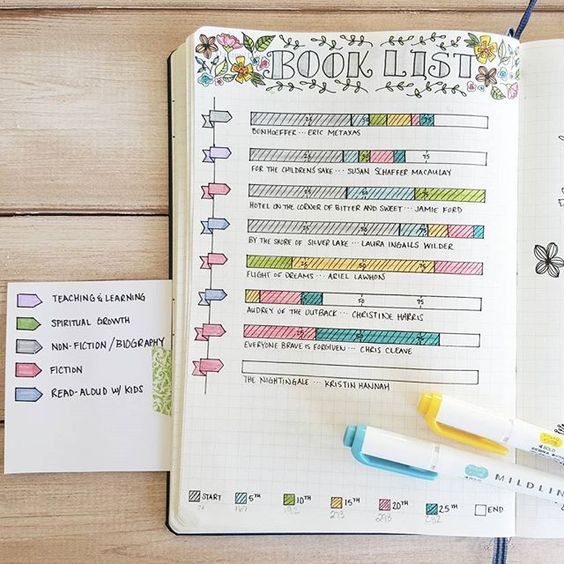 BOOK LIST
25 50 75
BONHOEFFER ··· ERIC METAXAS
25 75
FOR THE CHILDREN'S SAKE ··· SUSAN SCHAFFER MACAULAY
25 50 75
HOTEL ON THE CORNER OF BITTER AND SWEET ··· JAMIE FORD
25 50 75
BY THE SHORE OF SILVER LAKE ··· LAURA INGALLS WILDER
25 50 75
FLIGHT OF DREAMS ··· ARIEL LAWHON
25 50 75
AUDREY OF THE OUTBACK ··· CHRISTINE HARRIS
25 50 75
EVERYONE BRAVE IS FORGIVEN ··· CHRIS CLEAVE
THE NIGHTINGALE ··· KRISTIN HANNAH
TEACHING & LEARNING
SPIRITUAL GROWTH
NON-FICTION/BIOGRAPHY
FICTION
READ-ALOUD W/ KIDS
START 5TH 10TH 15TH 20TH 25TH END
BOLD
MILDLIN